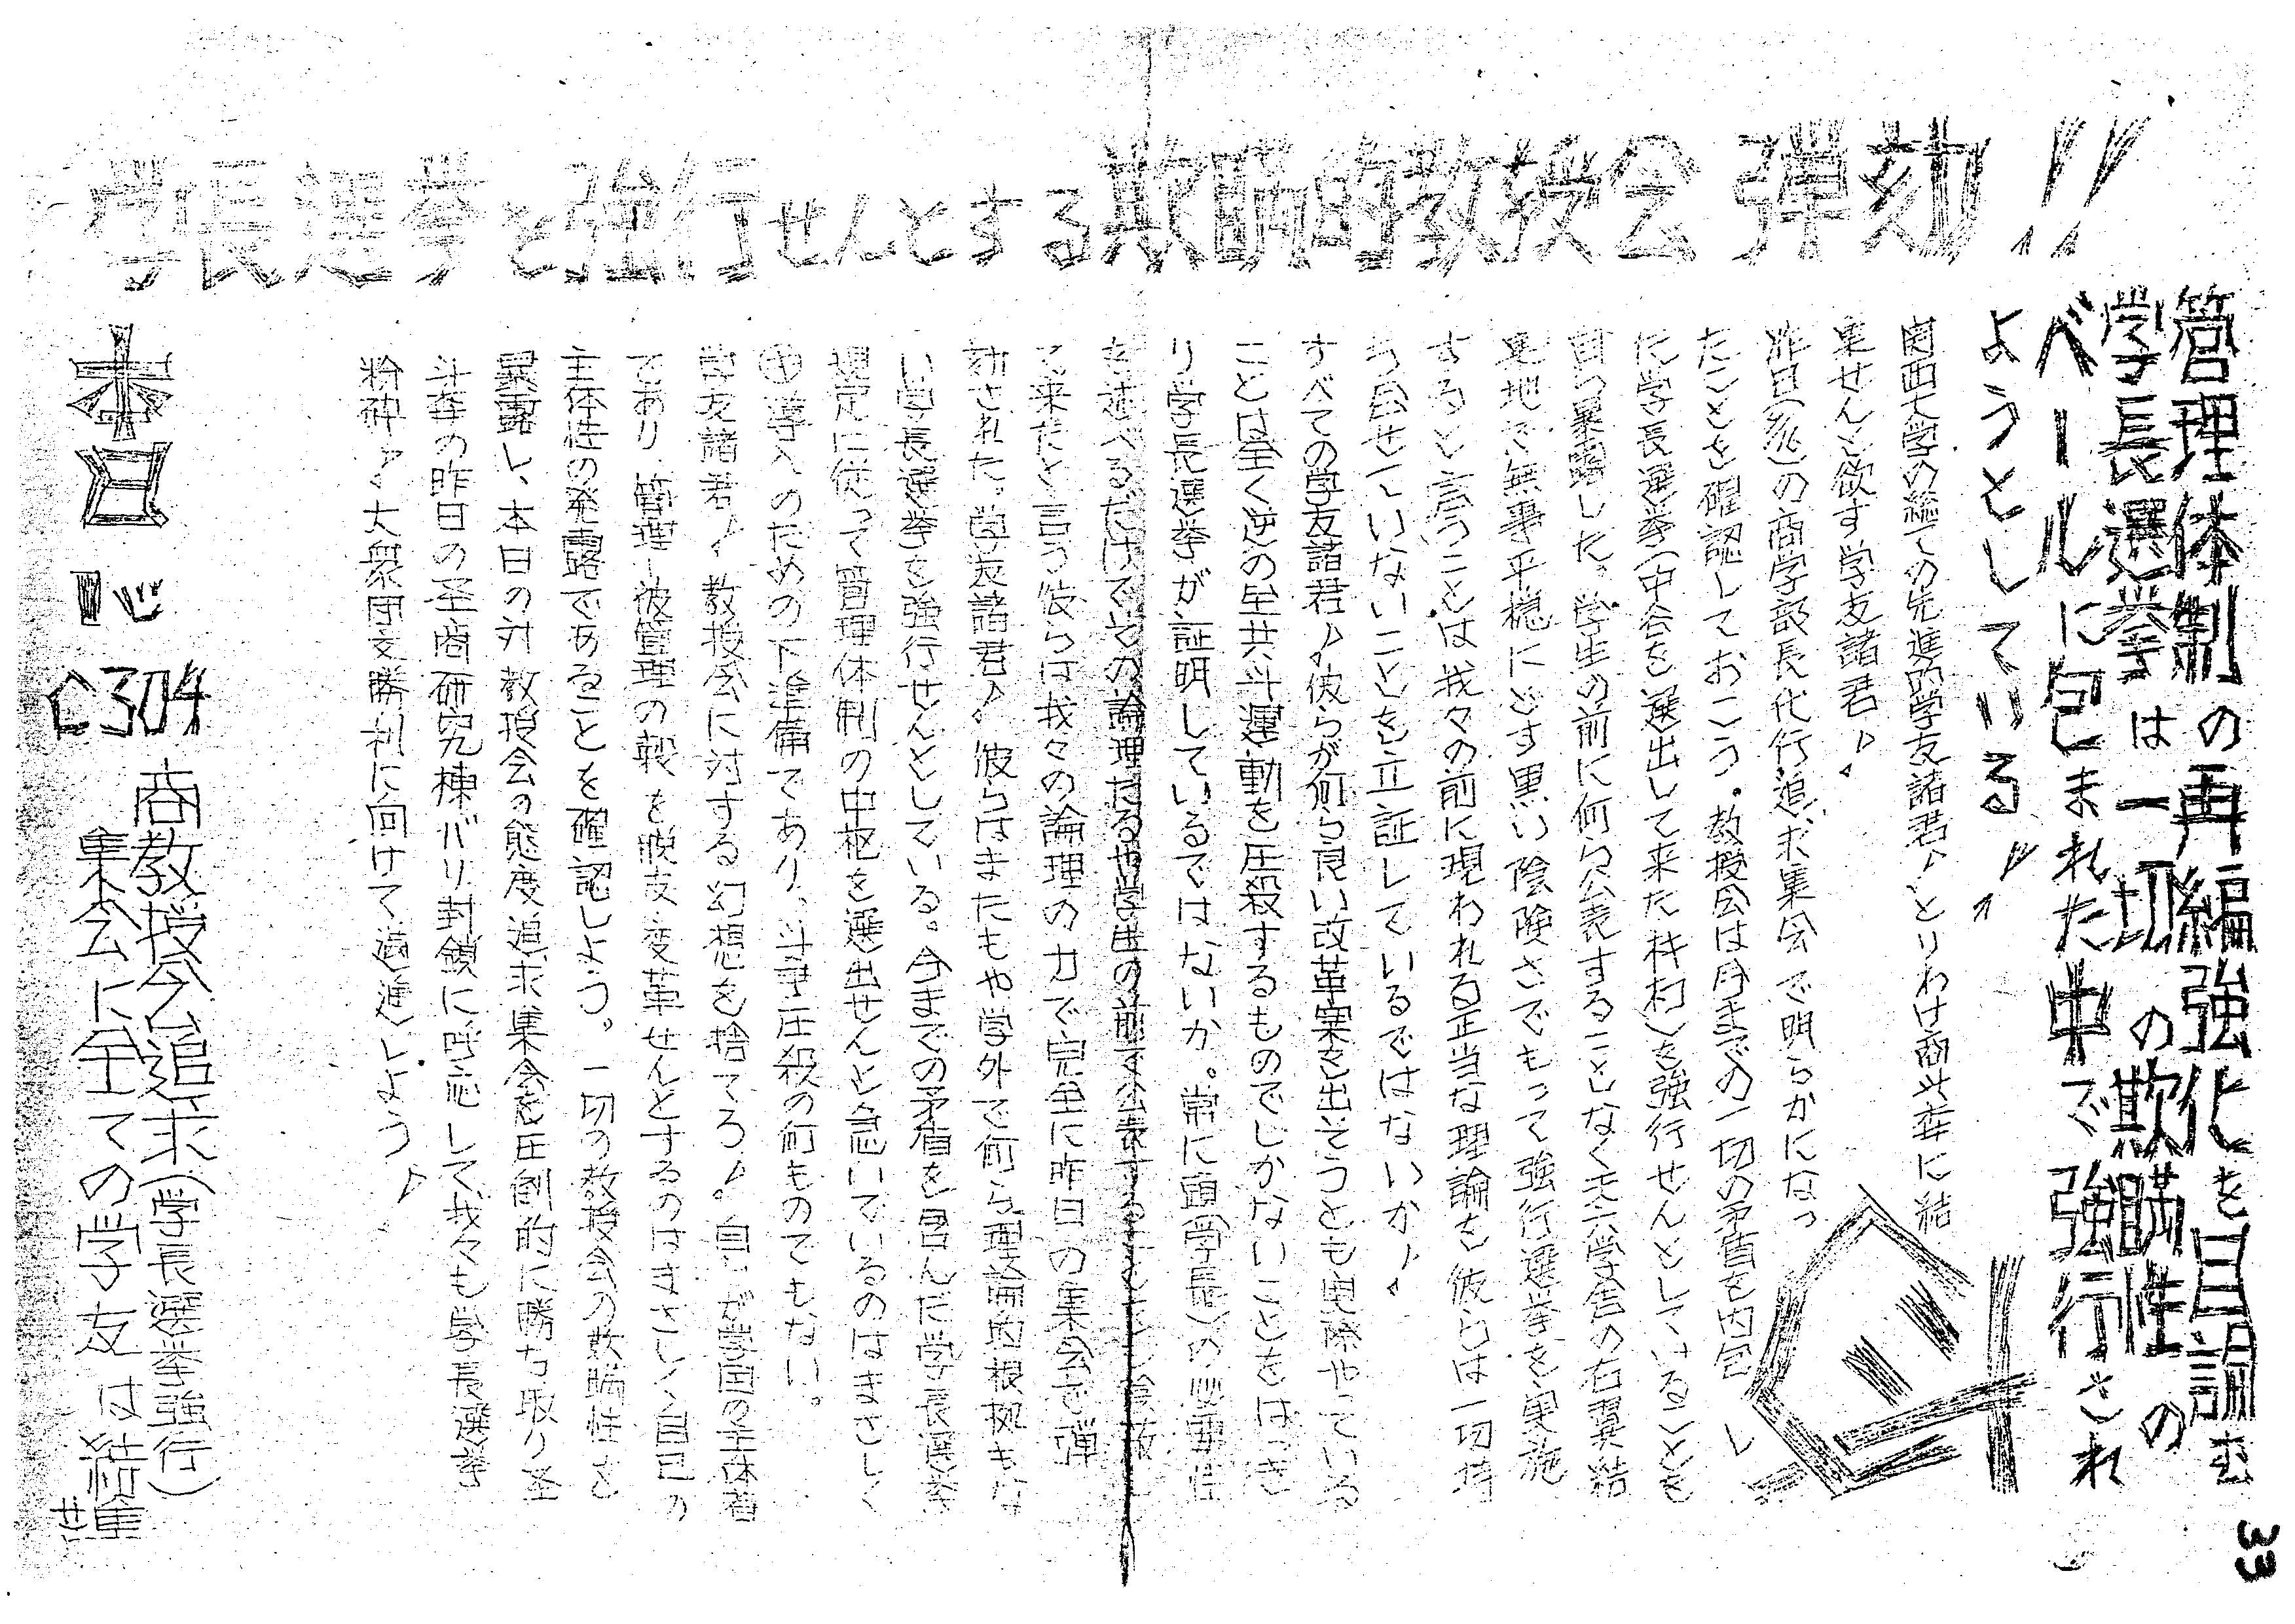 学長選挙を強行せんとする欺瞞的教授会弾劾!!
管理体制の再編強化を目論む
学長選挙は一切の欺瞞性の
ベールに包まれた中で強行され
ようとしている!!
関西大学の総ての先進的学友諸君!とりわけ商共斗に結
集せんと欲す学友諸君!
昨日(9/6)の商学部長代行追求集会で明らかになっ
たことを確認しておこう。教授会は今までの一切の矛盾を内包し
た学長選挙(中谷を選出して来た )を強行せんとしていることを
自ら暴露した。学生の前に何ら公表することなく天六学舎の右翼結
集地で無事平穏にどす黒い陰険さでもって強行選挙を実施
すると言うことは我々の前に現われる正当な理論を彼らは一切持
ち合せていないことを立証しているではないか!
すべての学友諸君!彼らが何ら良い改革案を出そうとも 現在やっている
ことは全く逆の全共斗運動を圧殺するものでしかないことをはっき
り学長選挙が証明しているではないか。常に(学長)の必要性
を述べるだけでその論理たるや学生の前で公表することもし
て来たと言う彼らは我々の論理の力で完全に昨日の集会で弾
劾された。学友諸君!彼らはまたもや学外で何ら理論的根拠もな
い学長選挙を強行せんとしている。今までの矛盾を含んだ学長選挙
規定に従って管理体制の中枢を選出せんと急いでいるのはまさしく
㊥導入のための下準備であり、斗争圧殺の何ものでもない。
学友諸君!教授会に対する幻想を捨てろ!。自己が変革の主体者
であり、管理-被管理の殻を脱皮・変革せんとするのはまさしく自己の
主体性の発露であることを確認しよう。一切の教授会の欺瞞性を
暴露し、本日の対教授会の態度追求集会を圧倒的に勝ち取り全
斗委の昨日の全商研究棟バリ封鎖に呼応して我々も学長選挙
粉砕!大衆団交勝利に向けて邁進しよう!
本日 1時 C304
商教授会追求(学長選挙強行)
集会に全ての学友は結集せよ
33